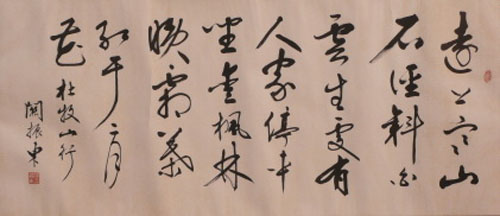 遠上寒山
石徑斜白
雲生處有
人家停車
坐愛楓林
晚霜葉
紅于二月
花 杜牧山行
關振東